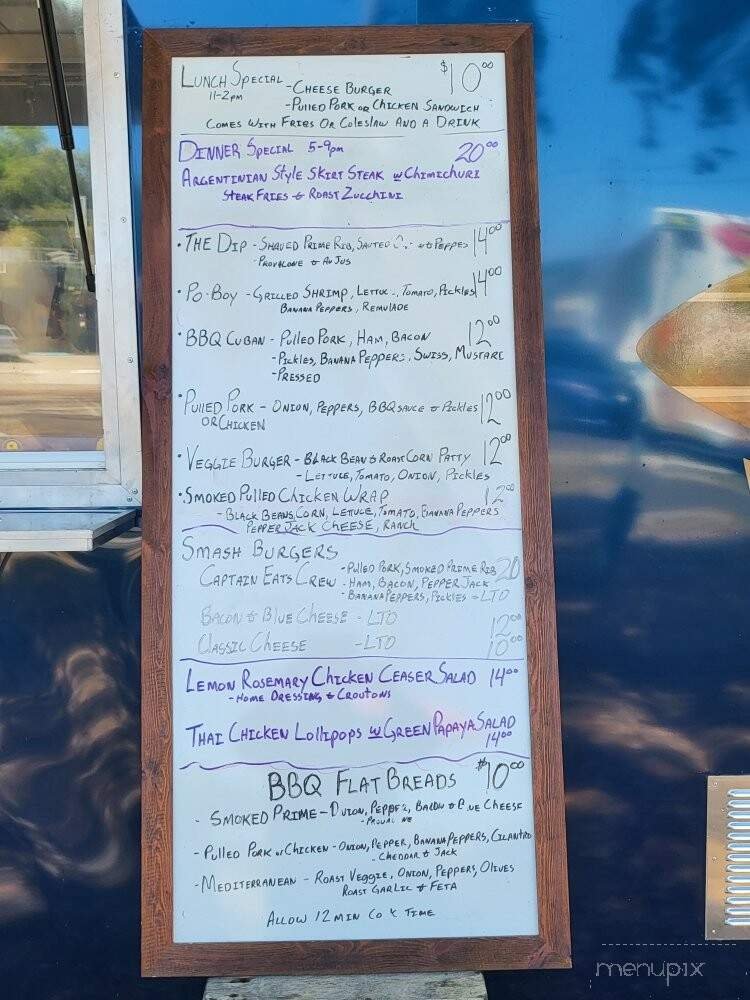 LUNCH SPECIAL - CHEESE BURGER $10.00
11-2pm - PULLED PORK OR CHICKEN SANDWICH
COMES WITH FRIES OR COLESLAW AND A DRINK
DINNER SPECIAL 5-9pm 20.00
ARGENTINIAN STYLE SKIRT STEAK w CHIMICHURI
STEAK FRIES & ROAST ZUCCHINI
• THE DIP - SHAVED PRIME RIB, SAUTED PEPPER 14.00
- PROVALONE & AU JUS
• PO-BOY - GRILLED SHRIMP, LETTUC, TOMATO, PICKLES 14.00
BANANA PEPPERS, REMULADE
• BBQ CUBAN - PULLED PORK, HAM, BACON 12.00
- PICKLES, BANANA PEPPERS, SWISS, MUSTARD
- PRESSED
• PULLED PORK - ONION, PEPPERS, BBQ SAUCE & PICKLES 12.00
OR CHICKEN
• VEGGIE BURGER - BLACK BEAN & ROAST CORN PATTY 12.00
- LETTUCE, TOMATO, ONION, PICKLES
• SMOKED PULLED CHICKEN WRAP 12.00
- BLACK BEANS, CORN, LETTUCE, TOMATO, BANANA PEPPERS
PEPPER JACK CHEESE, RANCH
SMASH BURGERS
CAPTAIN EATS CREW - PULLED PORK, SMOKED PRIME RIB 20
- HAM, BACON, PEPPER JACK
- BANANA PEPPERS, PICKLES - LTO
BACON & BLUE CHEESE - LTO 12.00
CLASSIC CHEESE - LTO 10.00
LEMON ROSEMARY CHICKEN CEASER SALAD 14.00
- HOME DRESSING & CROUTONS
THAI CHICKEN LOLLIPOPS w GREEN PAPAYA SALAD
14.00
BBQ FLAT BREADS $10.00
- SMOKED PRIME - ONION, PEPPER, BACON & BLUE CHEESE
- PULLED PORK or CHICKEN - ONION, PEPPER, BANANA PEPPERS, CILANTRO
- CHEDDAR & JACK
- MEDITERRANEAN - ROAST VEGGIE, ONION, PEPPERS, OLIVES
ROAST GARLIC & FETA
ALLOW 12 MIN TIME
menupix